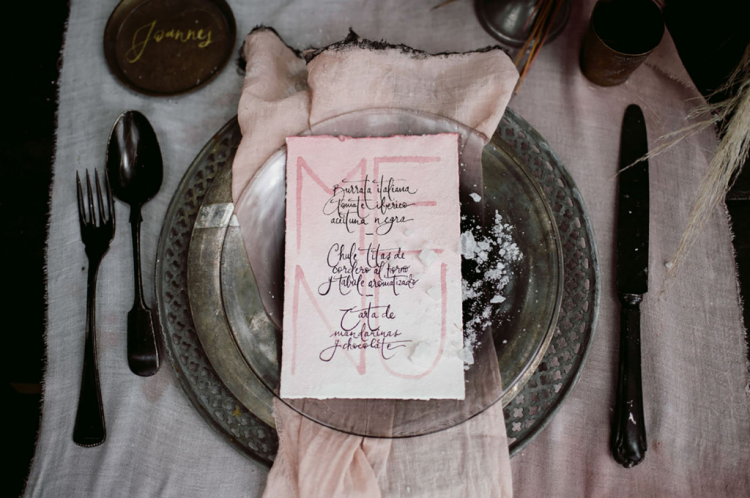 Joannes
ME
NU
Burrata italiana
tomate ibérico
aceituna negra
Chuletitas de
cordero al horno
y tabule aromatizado
Tarta de
mandarinas
y chocolate